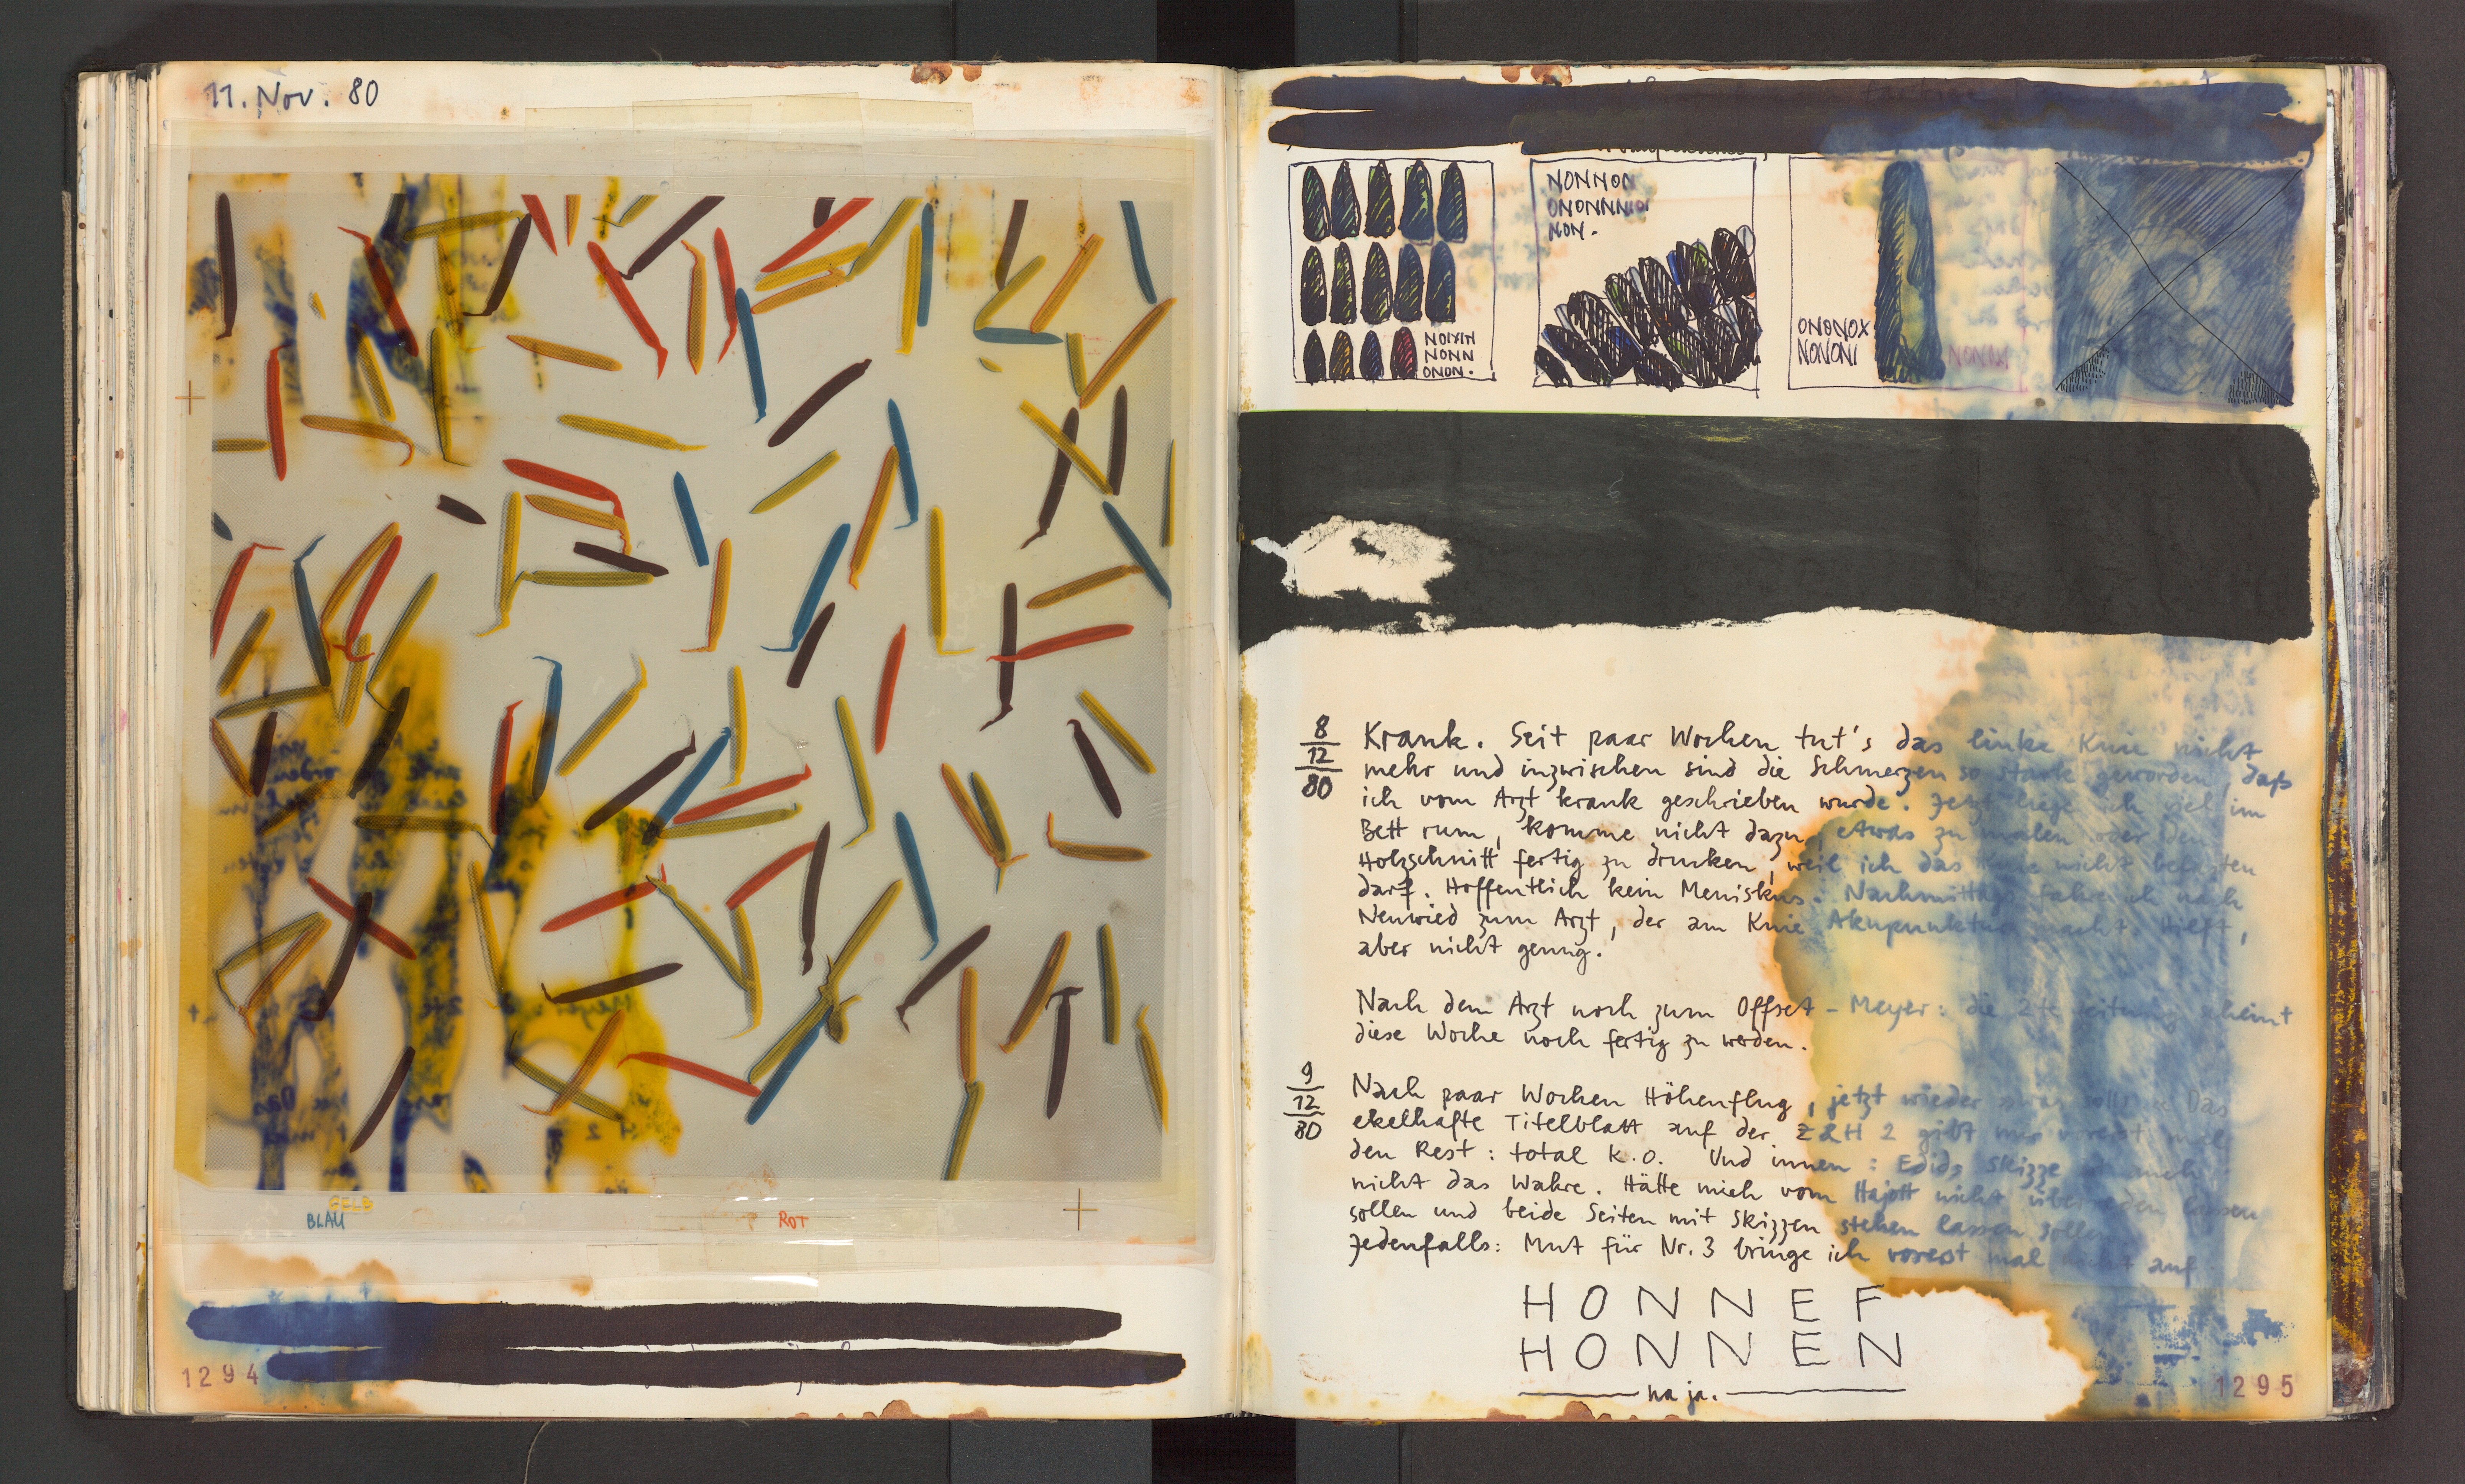 11. Nov. 80
GELB
BLAU
ROT
1294
NONNON
ONONNNON
NON.
NONN
ONON.
ONONOX
NONONI
8
12
80
Krank. Seit paar Wochen tut's das linke Knie nicht
mehr und inzwischen sind die Schmerzen so stark geworden, daß
ich vom Arzt krank geschrieben wurde. Jetzt liege ich viel im
Bett rum, komme nicht dazu, etwas zu malen oder den
Holzschnitt fertig zu drucken, weil ich das Knie nicht belasten
darf. Hoffentlich kein Meniskus. Nachmittags fahre ich nach
Neuwied zum Arzt, der am Knie Akupunktur macht. Hilft,
aber nicht genug.
Nach dem Arzt noch zum Offset-Meyer: die 2te Zeitung scheint
diese Woche noch fertig zu werden.
9
12
80
Nach paar Wochen Höhenflug, jetzt wieder Das
ekelhafte Titelblatt auf der Z&H 2 gibt mir vorerst mal
den Rest: total K.O. Und innen: Edids Skizze auch
nicht das Wahre. Hätte mich vom Hajott nicht überreden lassen
sollen und beide Seiten mit Skizzen stehen lassen sollen
Jedenfalls: Mut für Nr. 3 bringe ich vorerst mal nicht auf
HONNEF
HONNEN
na ja.
1295